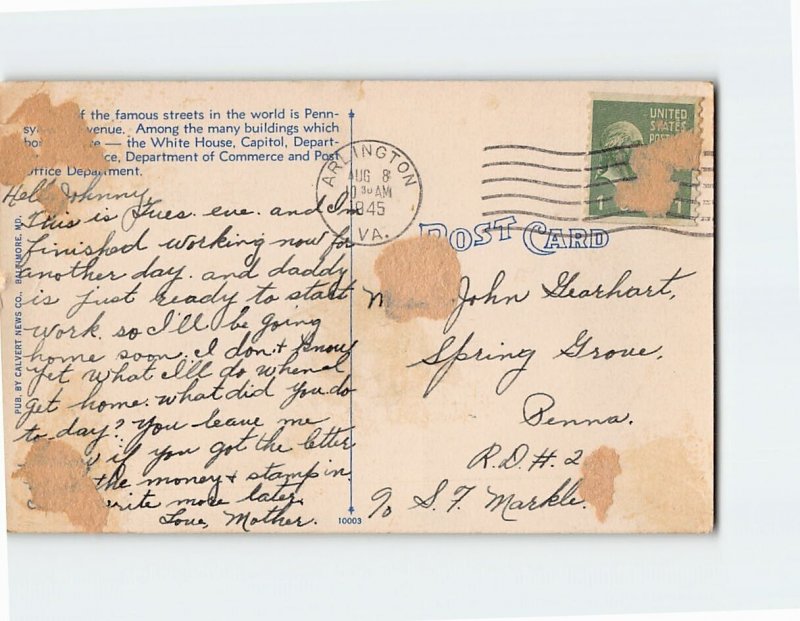 f the famous streets in the world is Penn-
sy venue. Among the many buildings which
the White House, Capitol, Depart-
ce, Department of Commerce and Post
Office Department.
Hello Johnny,
This is Tues. eve. and I'm
finished working now for
another day. and daddy
is just ready to start
work. so I'll be going
home soon. I don't know
yet what I'll do when I
get home. what did you do
to-day? You leave me
if you got the letter
the money & stamp in.
write more later.
Love, Mother.
PUB. BY CALVERT NEWS CO., BALTIMORE, MD.
10003
ARLINGTON
AUG 8
10 30 AM
1945
VA.
UNITED
STATES
POST
1
POST CARD
John Gearhart,
Spring Grove,
Penna.
R.D.#.2
c/o S. F. Markle.